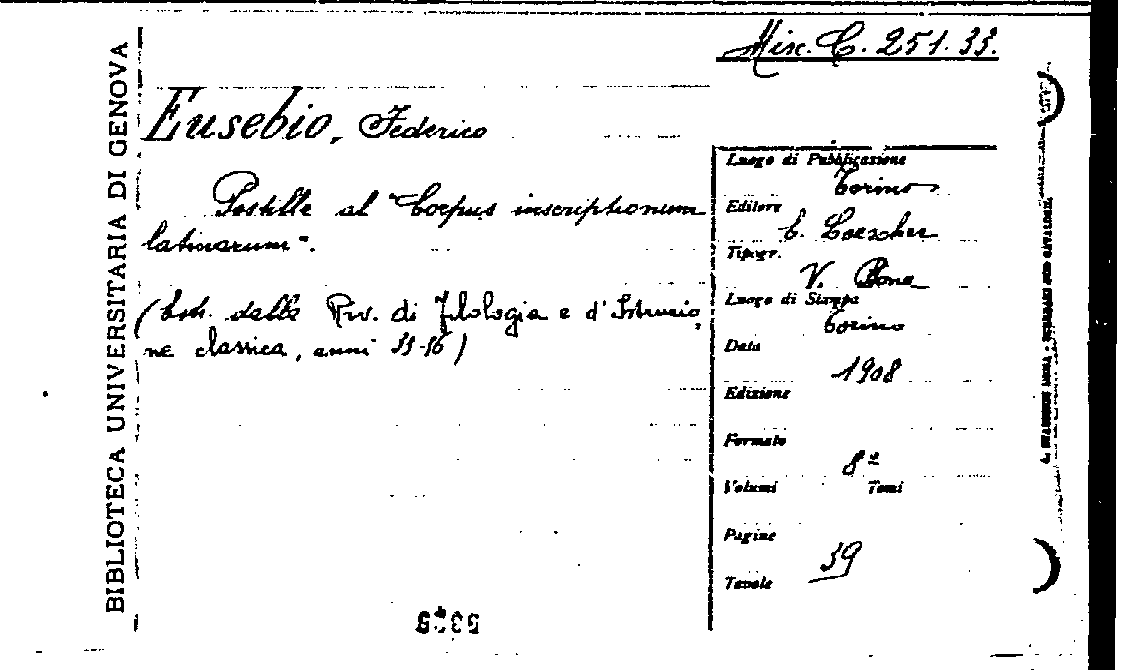 Misc. C. 251. 33.
BIBLIOTECA UNIVERSITARIA DI GENOVA
Eusebio, Federico
Postille al "Corpus inscriptionum
latinarum".
(Estr. dalla Riv. di Filologia e d'Istruzio
ne classica, anni
Luogo di Pubblicazione
Torino
Editore
E. Loescher
Tipogr.
V. Bona
Luogo di Stampa
Torino
Data
1908
Edizione
Formato
8º
Volumi Tomi
Pagine
39
Tavole